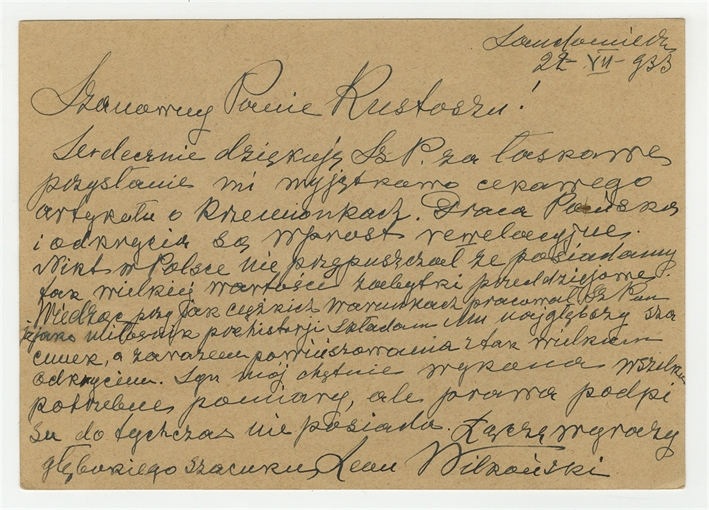 Sandomierz
22- VII - 933
Szanowny Panie Kustoszu!
Serdecznie dziękuję Sz P. za łaskawe
przysłanie mi wyjątkowo cekawego
artykułu o Krzemionkach. Praca Pańska
i odkrycia są wprost rewelacyjne.
Nikt w Polsce nie przypuszczał że posiadamy
tak wielkiej wartości zabytki przeddziejowe.
Wiedząc przy jak ciężkich warunkach pracował Sz Pan
jako miłośnik prehistorji składam Mu najgłębszy sza
cunek, a zarazem powinszowania z tak wielkim
odkryciem. Syn mój chętnie wykona wszelkie
potrzebne pomiary, ale prawa podpi
su dotychczas nie posiada. Łączę wyrazy
głębokiego szacunku, Leon Wilkoński